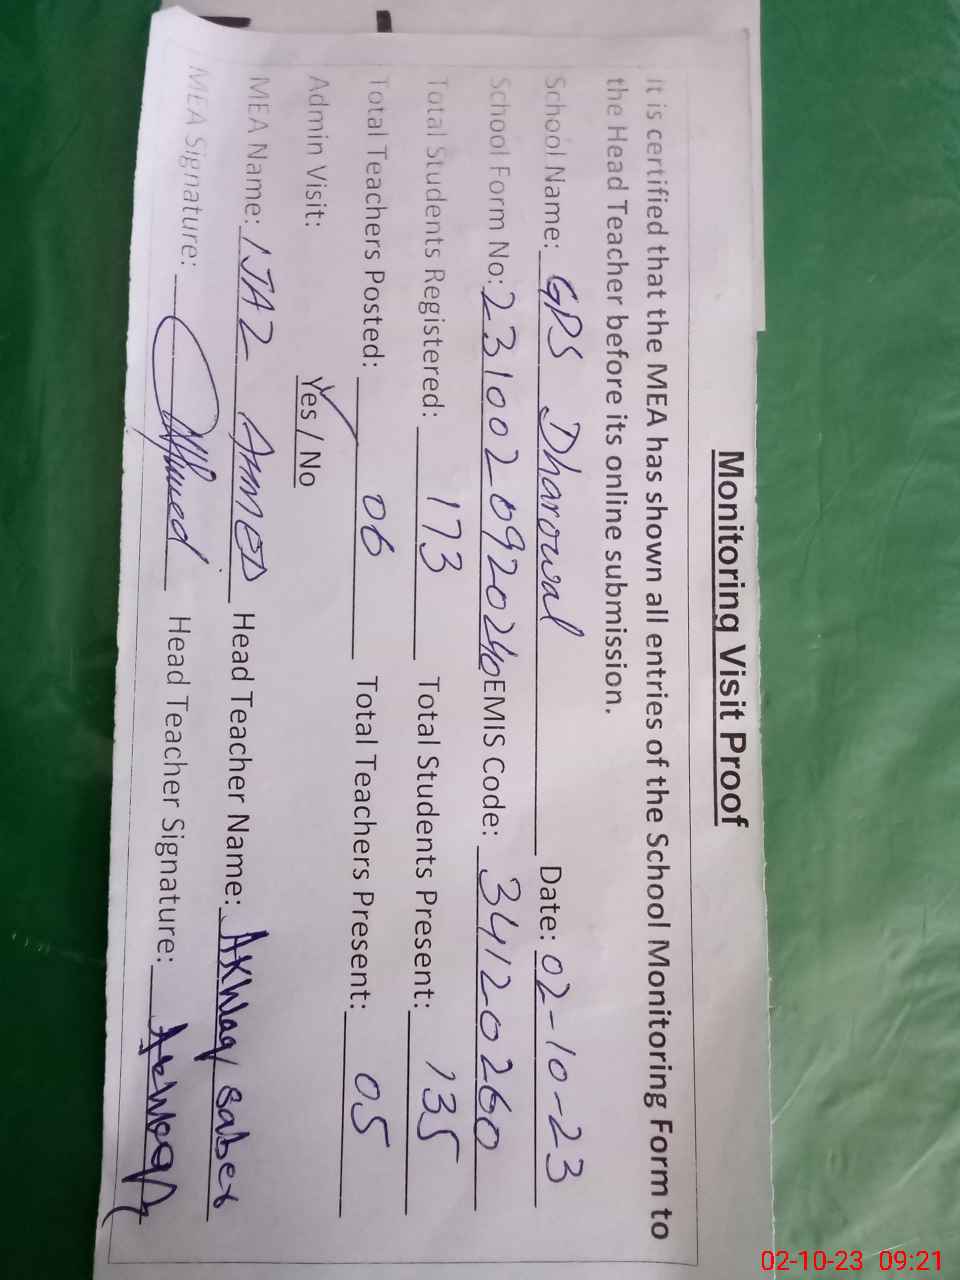 Monitoring Visit Proof
It is certified that the MEA has shown all entries of the School Monitoring Form to
the Head Teacher before its online submission.
School Name: GPS Dharowal Date: 02-10-23
School Form No: 2310020920240 EMIS Code: 34120260
Total Students Registered: 173 Total Students Present: 135
Total Teachers Posted: 06 Total Teachers Present: 05
Admin Visit: Yes / No
MEA Name: IJAZ AHMED Head Teacher Name: Akwaq Saber
MEA Signature: Head Teacher Signature:
02-10-23 09:21